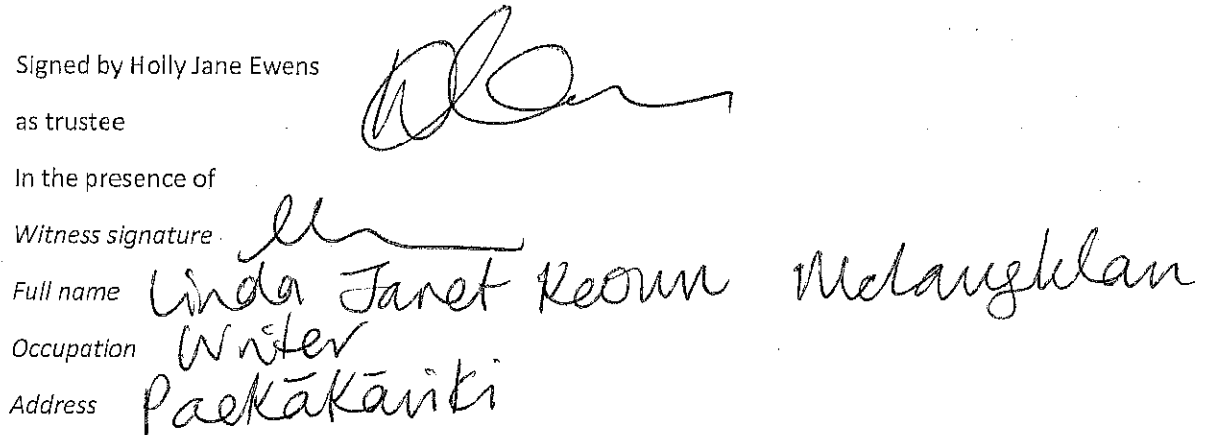 Signed by Holly Jane Ewens
as trustee
In the presence of
Witness signature
Full name Linda Janet Keown McLaughlan
Occupation Writer
Address Paekākāriki